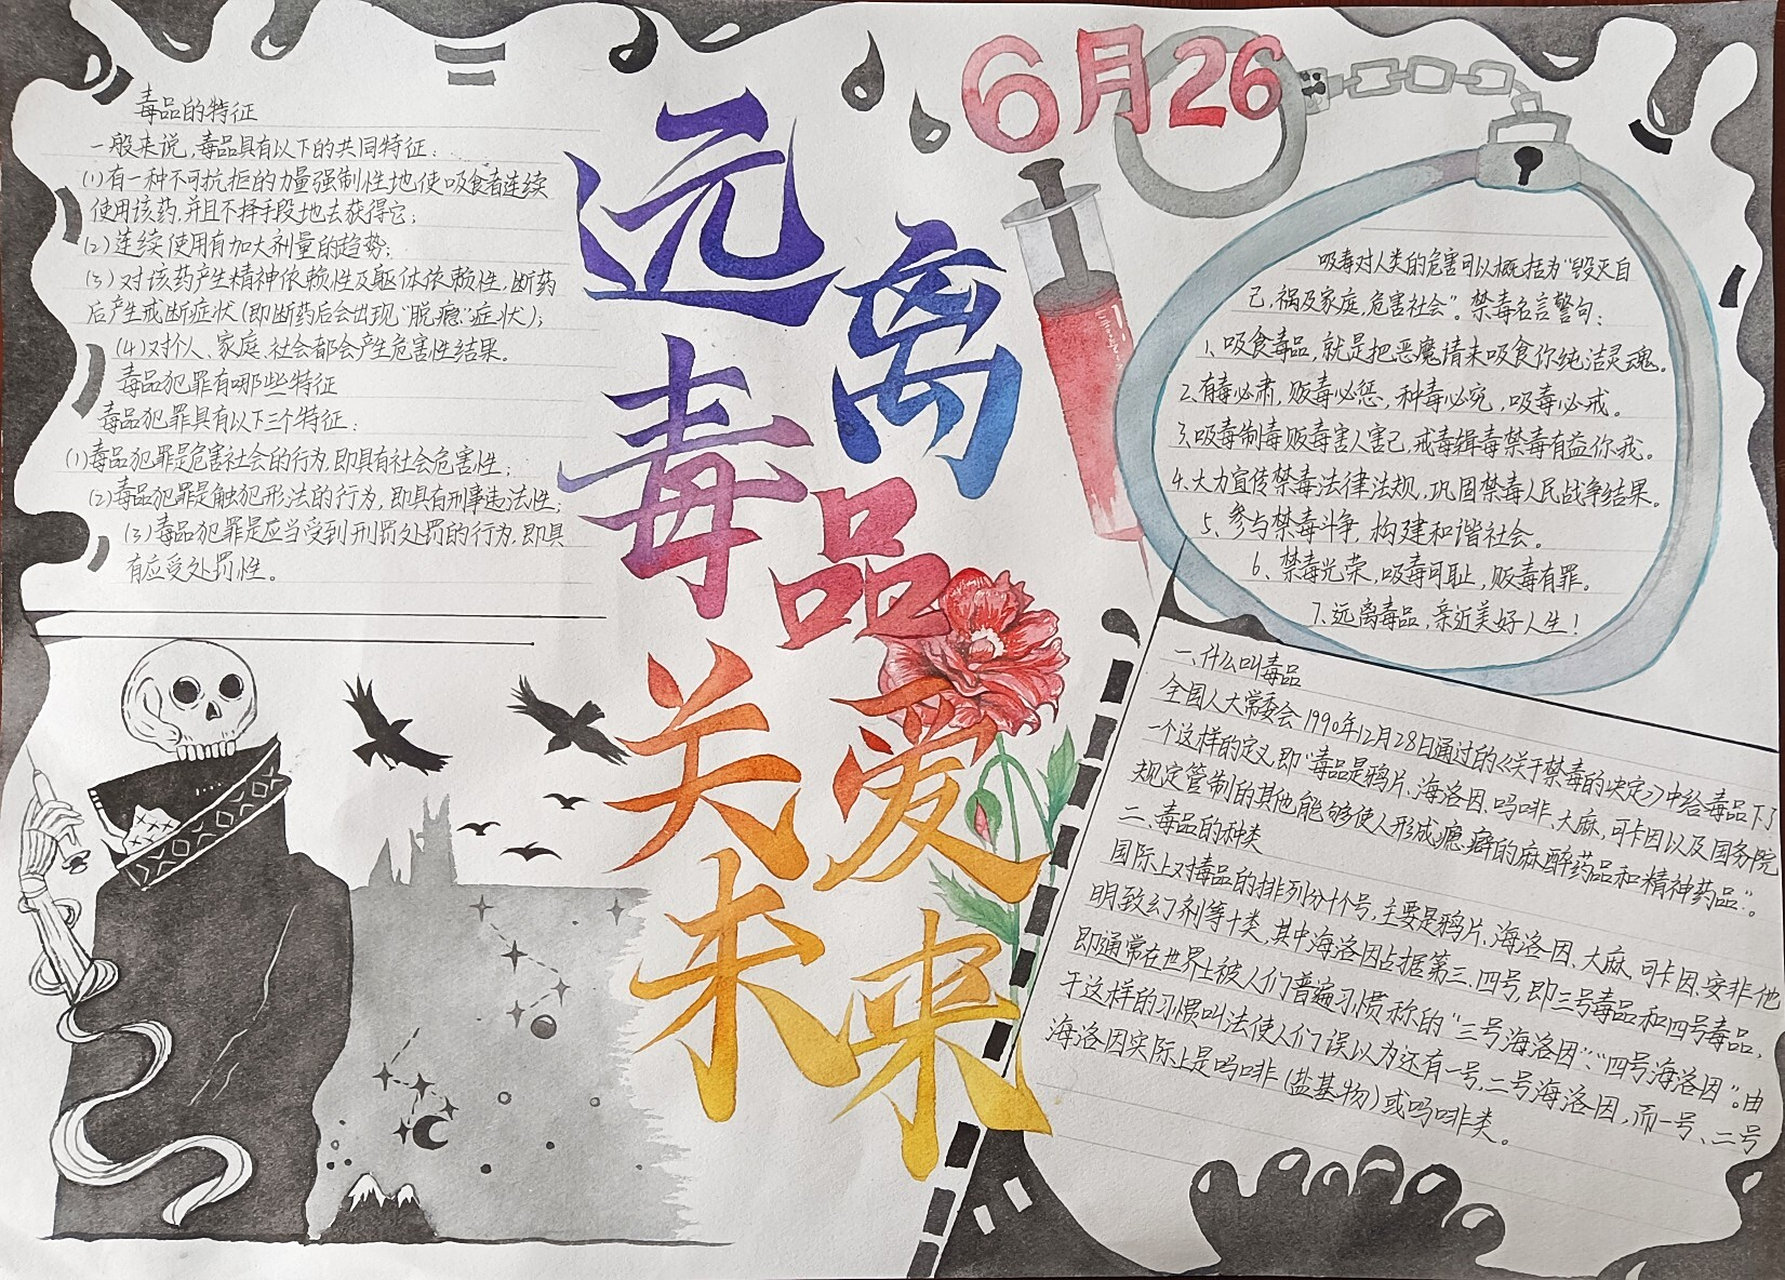 6月26
远离
毒品
关爱
未来
毒品的特征
一般来说,毒品具有以下的共同特征:
(1)有一种不可抗拒的力量强制性地使吸食者连续
使用该药,并且不择手段地去获得它;
(2)连续使用有加大剂量的趋势;
(3)对该药产生精神依赖性及躯体依赖性,断药
后产生戒断症状(即断药后会出现“脱瘾”症状);
(4)对个人、家庭、社会都会产生危害性结果。
毒品犯罪有哪些特征
毒品犯罪具有以下三个特征:
(1)毒品犯罪是危害社会的行为,即具有社会危害性;
(2)毒品犯罪是触犯刑法的行为,即具有刑事违法性;
(3)毒品犯罪是应当受到刑罚处罚的行为,即具
有应受处罚性。
吸毒对人类的危害可以概括为“毁灭自
己,祸及家庭,危害社会”。禁毒名言警句:
1、吸食毒品,就是把恶魔请来吸食你纯洁灵魂。
2、有毒必肃,贩毒必惩,种毒必究,吸毒必戒。
3、吸毒制毒贩毒害人害己,戒毒缉毒禁毒有益你我。
4、大力宣传禁毒法律法规,巩固禁毒人民战争结果。
5、参与禁毒斗争,构建和谐社会。
6、禁毒光荣,吸毒可耻,贩毒有罪。
7、远离毒品,亲近美好人生!
一、什么叫毒品
全国人大常委会1990年12月28日通过的《关于禁毒的决定》中给毒品下了
一个这样的定义,即“毒品是鸦片、海洛因、吗啡、大麻、可卡因以及国务院
规定管制的其他能够使人形成瘾癖的麻醉药品和精神药品”。
二、毒品的种类
国际上对毒品的排列分十个号,主要是鸦片、海洛因、大麻、可卡因、安非他
明、致幻剂等十类,其中海洛因占据第三、四号,即三号毒品和四号毒品,
即通常在世界上被人们普遍习惯称的“三号海洛因”、“四号海洛因”。由
于这样的习惯叫法使人们误以为还有一号,二号海洛因,而一号、二号
海洛因实际上是吗啡(盐基物)或吗啡类。